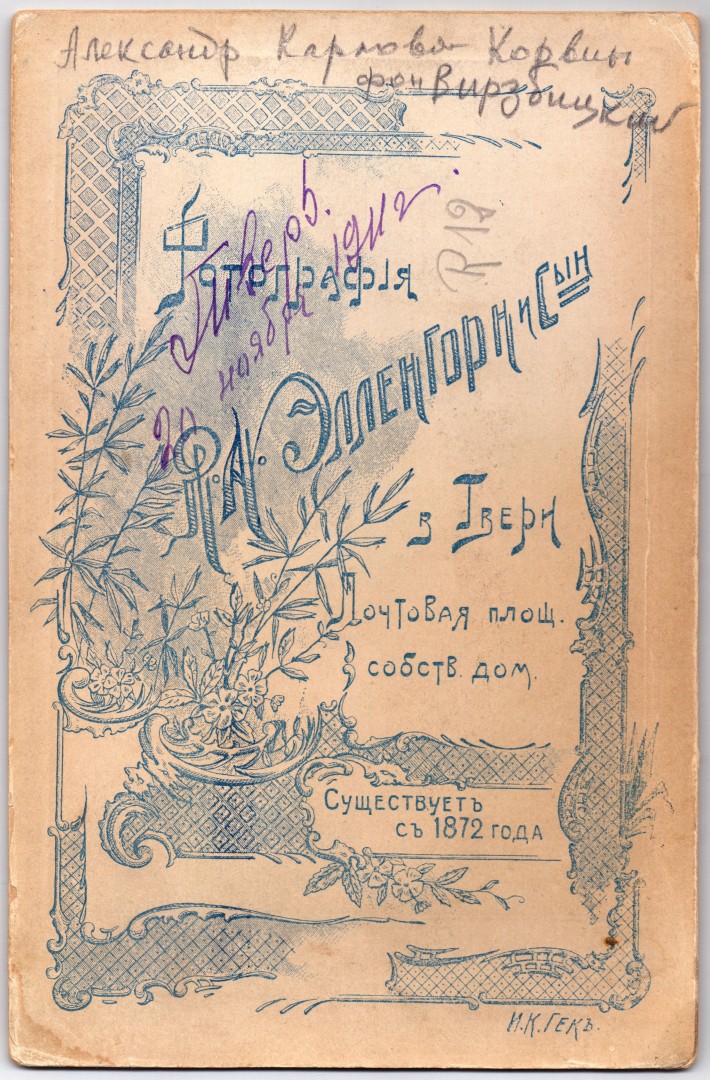 Александр Карлович Корвин
фон Вирзбицкий
Тверь.
20 ноября 1912.
R 12
Фотографія
Р. М. Элленгорн и Сын
в Твери
Почтовая площ.
собств. дом.
Существуетъ
съ 1872 года
И.К.Гекъ.